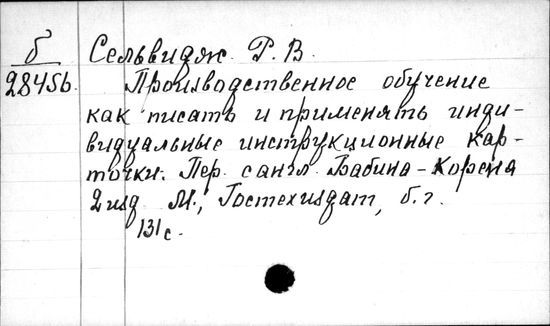 б Сельвидж Р. В.
28456 Производственное обучение
как писать и применять инди-
видуальные инструкционные кар-
точки. Пер. с англ. Бабина-Кореня
2 изд М., Гостехиздат, б. г.
131 с.